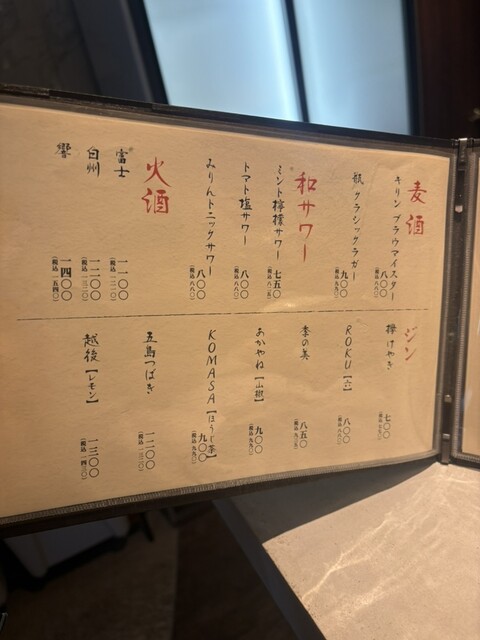 麦酒
キリン ブラウマイスター
八〇〇
(税込 八八〇)
瓶 クラシックラガー
九〇〇
(税込 九九〇)
和サワー
ミント檸檬サワー
七五〇
(税込 八二五)
トマト塩サワー
八〇〇
(税込 八八〇)
みりんトニックサワー
八〇〇
(税込 八八〇)
火酒
富士
一一〇〇
(税込 一二一〇)
白州
一二〇〇
(税込 一三二〇)
響
一四〇〇
(税込 一五四〇)
ジン
欅 けやき
七〇〇
(税込 七七〇)
ROKU【六】
八〇〇
(税込 八八〇)
季の美
八五〇
(税込 九三五)
おかやね【山椒】
九〇〇
(税込 九九〇)
KOMASA【ほうじ茶】
九〇〇
(税込 九九〇)
五島つばき
一二〇〇
(税込 一三二〇)
越後【レモン】
一三〇〇
(税込 一四三〇)